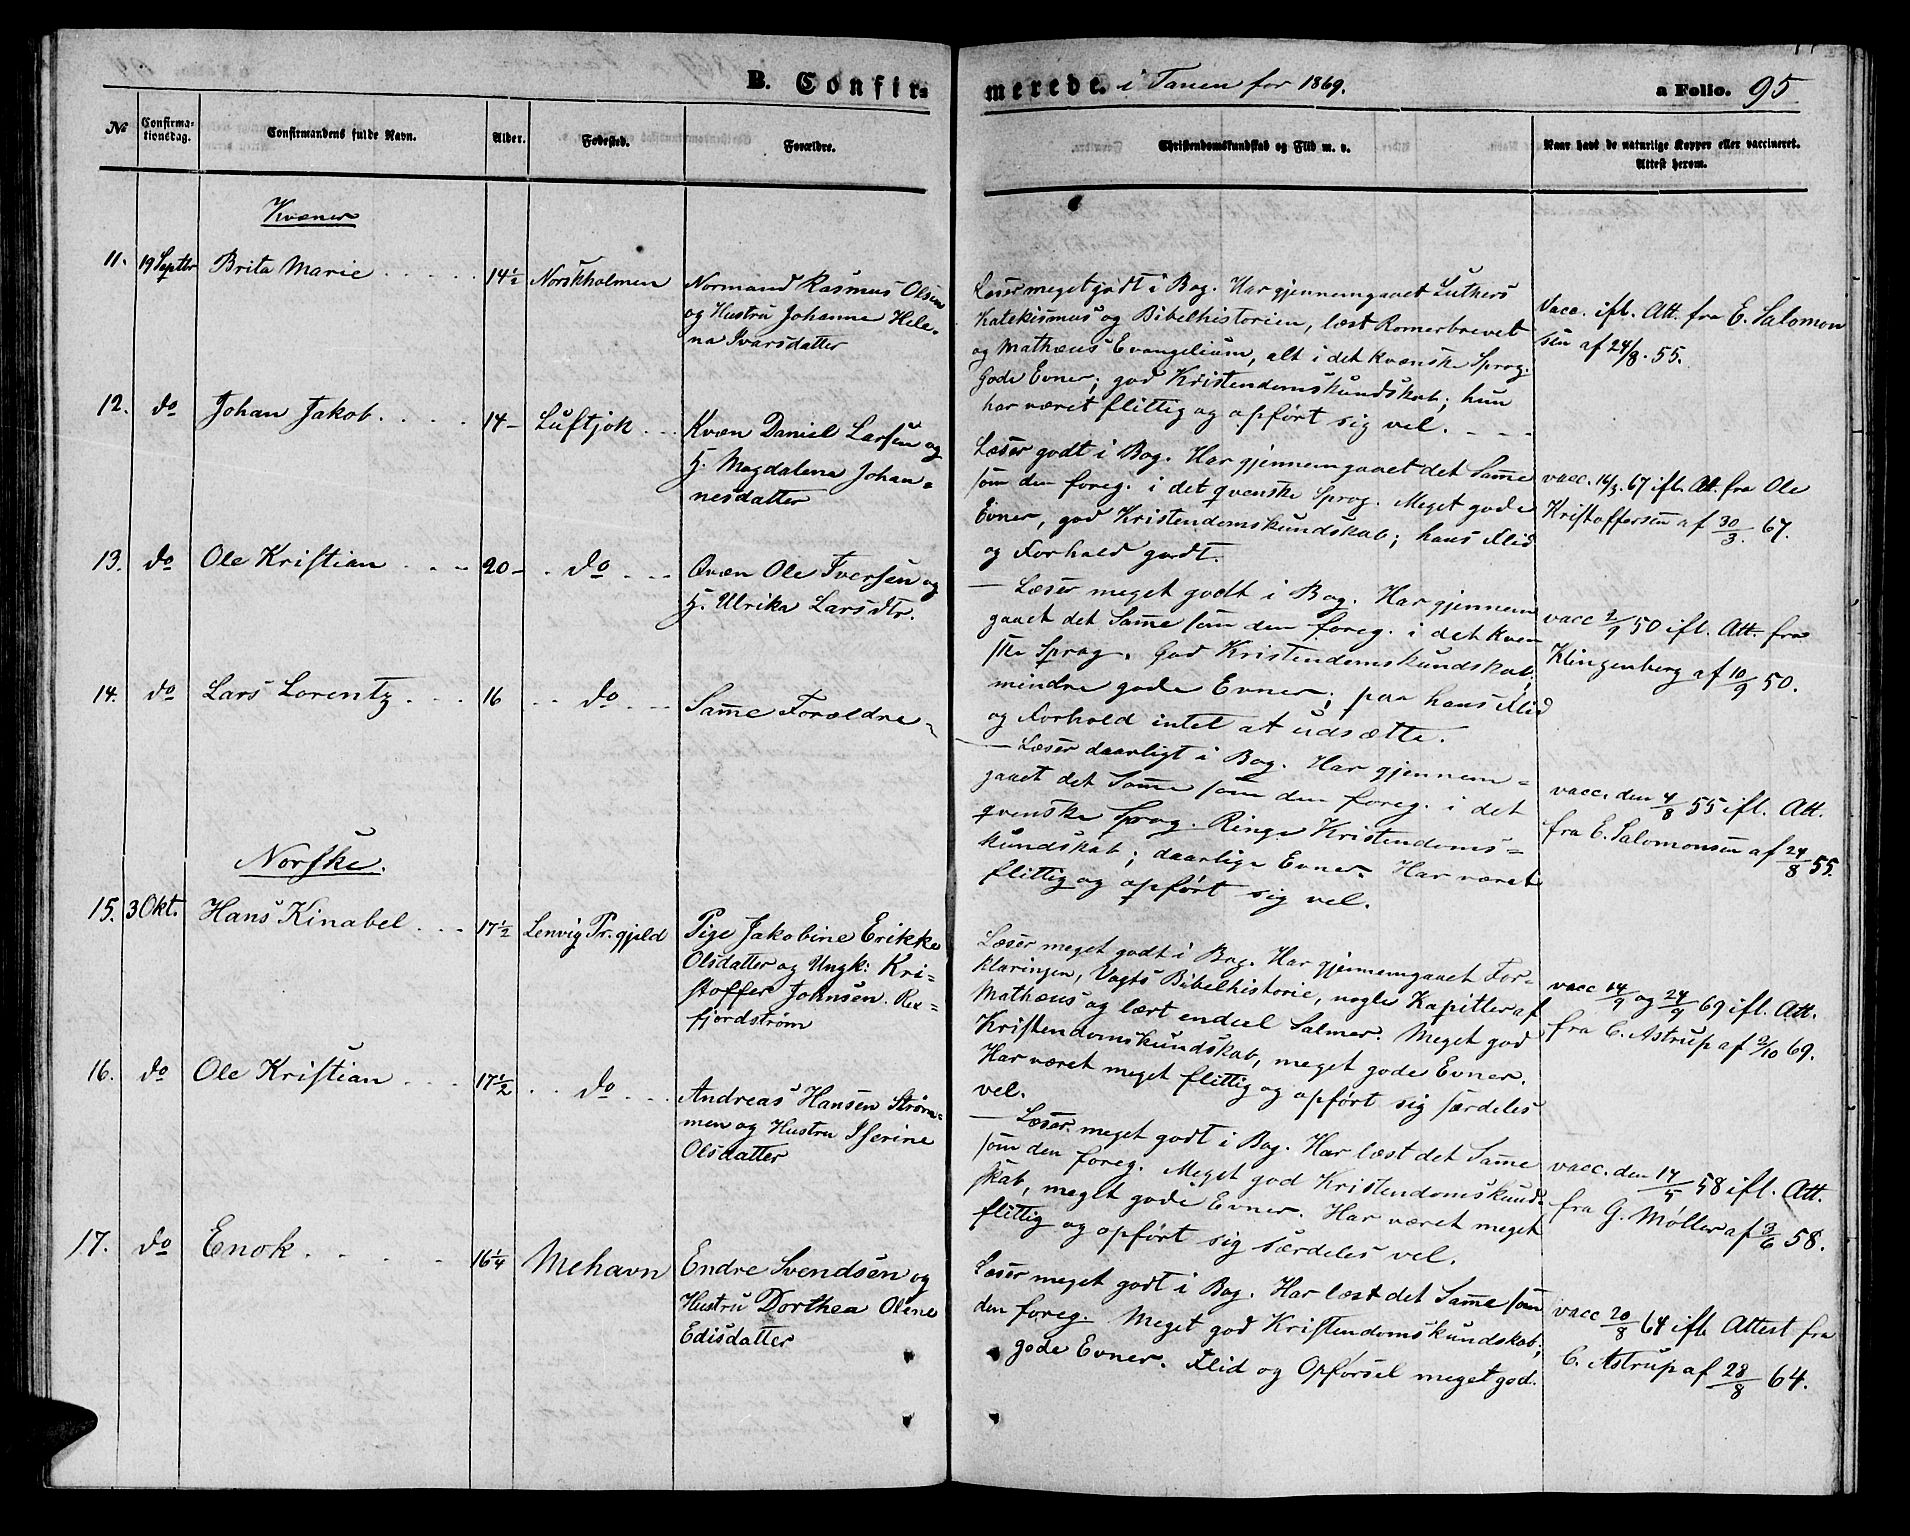 B. Confirmerede. i Tanen for 1869. a Folio. 95
No
Confirmationsdag.
Confirmandens fulde Navn.
Alder.
Fødested.
Forældre.
Christendomskundskab og Flid m. v.
Naar havt de naturlige Kopper eller vaccineret. Attest herom.
Kvæner
11. 19 Septbr Brita Marie 14½ Norskholmen
Normand Rasmus Olsen
og Hustru Johanne Hele-
na Ivarsdatter
Læser meget godt i Bog. Har gjennemgaaet Luthers
Katekismus og Bibelhistorien, læst Romerbrevet
og Mathæus Evangelium, alt i det kvænske Sprog.
Gode Evner; god Kristendomskundskab; hun
har været flittig og opført sig vel.
Vacc. ifl. Att. fra E. Salomon
sen af 24/8. 55.
12. do Johan Jakob 14 - Luftjok
Kvæn Daniel Larsen og
H. Magdalena Johan-
nesdatter
Læser godt i Bog. Har gjennemgaaet det Samme
som den foreg. i det qvenske Sprog. Meget gode
Evner, god Kristendomskundskab; hans Flid
og Forhold godt.
vacc. 16/3. 67 ifl. Att. fra Ole
Kristoffersen af 30/3. 67.
13. do Ole Kristian 20 - do
Qvæn Ole Iversen og
H. Ulrika Larsdtr.
- Læser meget godt i Bog. Har gjennem
gaaet det Samme som den foreg. i det kven
ske Sprog. God Kristendomskundskab,
mindre gode Evner; paa hans Flid
og Forhold intet at udsætte.
vacc 2/9 50 ifl. Att. fra
Klingenberg af 10/9 50.
14. do Lars Lorentz 16 do
Samme Forældre
- Læser daarligt i Bog. Har gjennem-
gaaet det Samme som den foreg. i det
qvenske Sprog. Ringe Kristendoms-
kundskab; daarlige Evner. Har været
flittig og opført sig vel.
vacc. den 4/8 55 ifl. Att.
fra E. Salomonsen af 24/8 55.
Norske.
15. 3 Okt. Hans Kinabel 17½ Lenvig Pr.gjeld
Pige Jakobine Erikke
Olsdatter og Ungk: Kri-
stoffer Johnsen
fjordstrøm
Læser meget godt i Bog. Har gjennemgaaet For-
klaringen, Vogts Bibelhistorie, nogle Kapitler af
Mathæus og lært endeel Salmer. Meget god
Kristendomskundskab, meget gode Evner.
Har været meget flittig og opført sig særdeles
vel.
vacc 14/9 og 24/9 69 ifl. Att.
fra C. Astrup af 2/10 69.
16. do Ole Kristian 17½ do
Andreas Hansen Strøm-
men og Hustru Iserine
Olsdatter
- Læser meget godt i Bog. Har læst det Samme
som den foreg. Meget god Kristendomskund-
skab, meget gode Evner. Har været meget
flittig og opført sig særdeles vel.
vacc. den 17/5 58 ifl. Att.
fra G. Møller af 3/6 58.
17. do Enok 16¼ Mehavn
Endre Svendsen og
Hustru Dorthea Olene
Edisdatter
Læser meget godt i Bog. Har læst det Samme som
den foreg. Meget god Kristendomskundskab;
gode Evner. Flid og Opførsel meget god.
vacc 20/8 64 ifl. Attest fra
C. Astrup af 28/8 64.